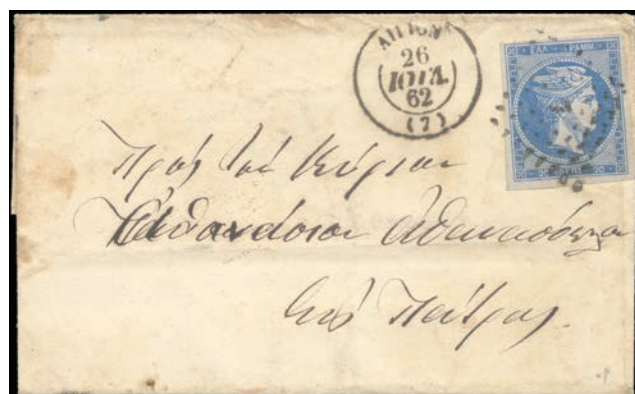 ΑΙΓΙΟΝ
26
ΙΟΥΛ.
62
(7)
ΕΛΛ. ΓΡΑΜΜ.
20 20
Πρὸς τὸν Κύριον
Ἀθανάσιον Ἀθανασόπουλον
Εἰς Πάτρας.